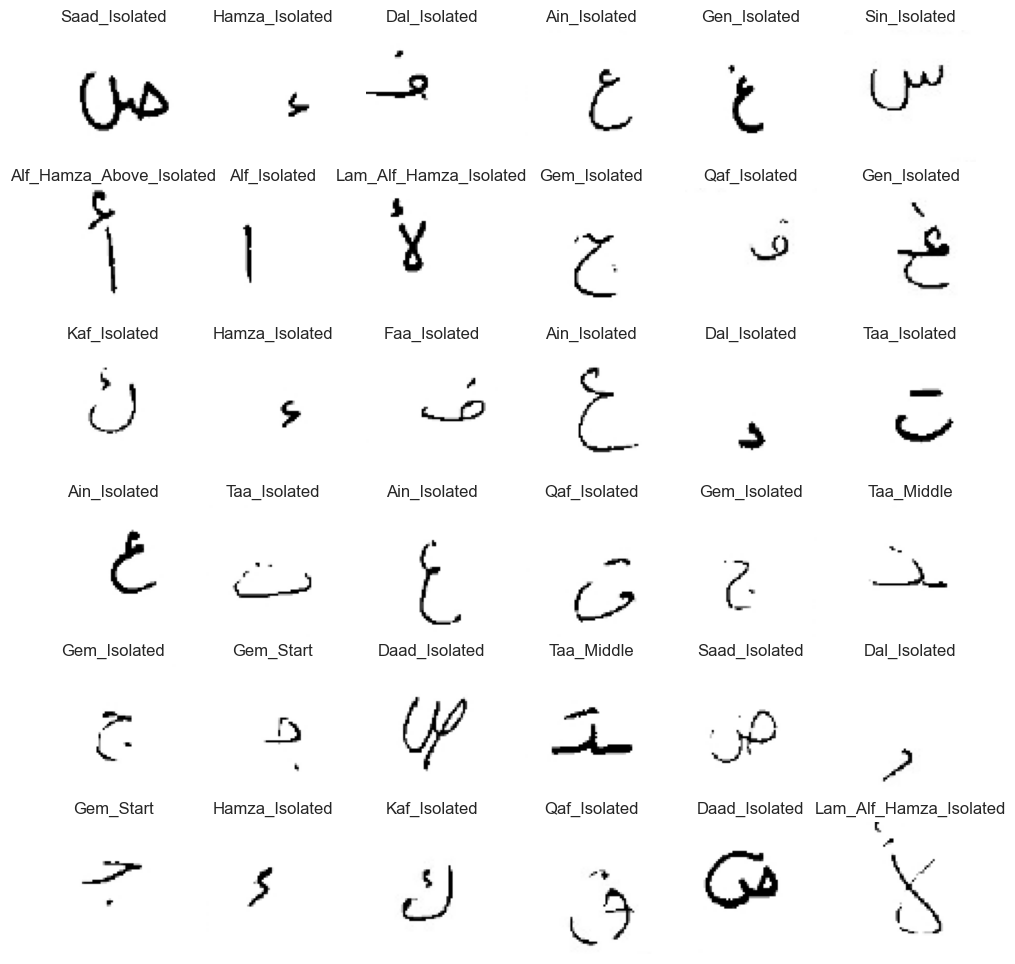 Saad_Isolated Hamza_Isolated Dal_Isolated Ain_Isolated Gen_Isolated Sin_Isolated
ص ء ف ع غ س
Alf_Hamza_Above_Isolated Alf_Isolated Lam_Alf_Hamza_Isolated Gem_Isolated Qaf_Isolated Gen_Isolated
أ ا لأ ج ف غ
Kaf_Isolated Hamza_Isolated Faa_Isolated Ain_Isolated Dal_Isolated Taa_Isolated
ك ء ف ع د ت
Ain_Isolated Taa_Isolated Ain_Isolated Qaf_Isolated Gem_Isolated Taa_Middle
ع ت ع ق ج ـتـ
Gem_Isolated Gem_Start Daad_Isolated Taa_Middle Saad_Isolated Dal_Isolated
ج جـ ص ـتـ ض د
Gem_Start Hamza_Isolated Kaf_Isolated Qaf_Isolated Daad_Isolated Lam_Alf_Hamza_Isolated
جـ ء ك ق ض لأ